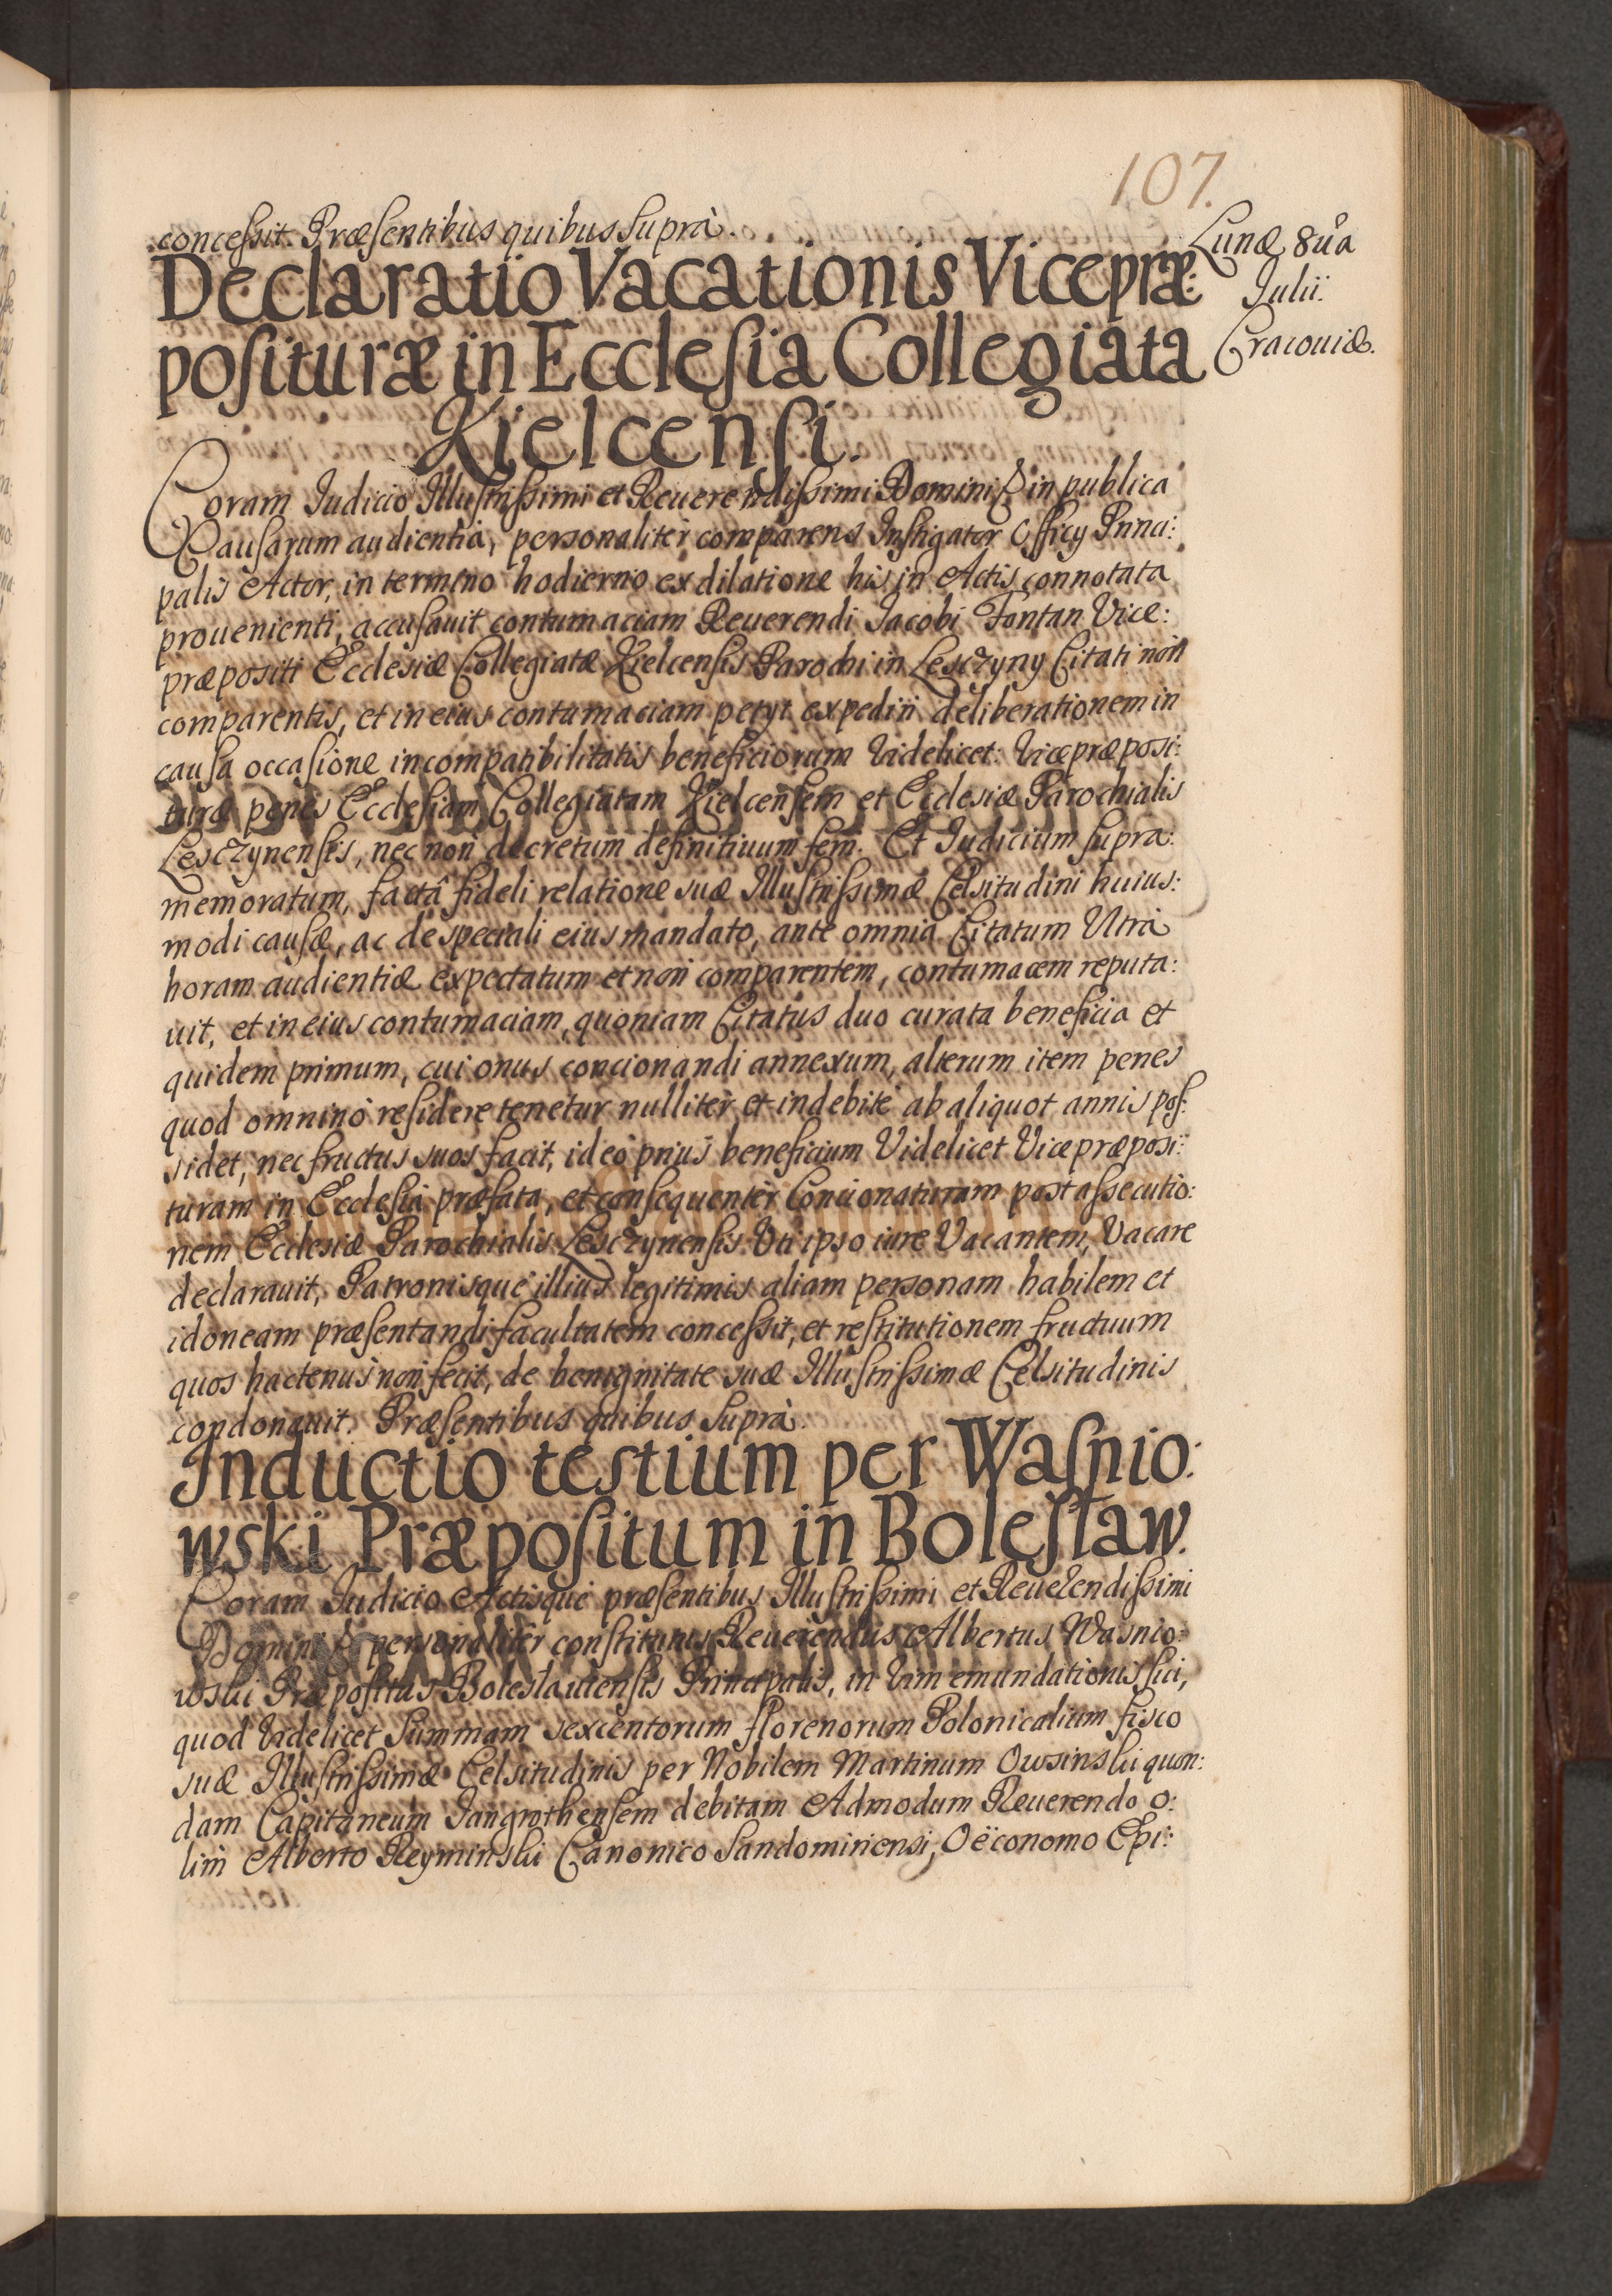 107.
concessit. Præsentibus quibus Suprà.
Lunæ 8ua
Julii.
Cracouiæ.
Declaratio Vacationis Viceprӕ:
positurӕ in Ecclesia Collegiata
Kielcensi.
Coram Judicio Illustrissimi et Reuerendissimi Domini in publica
Causarum audientia, personaliter comparens Instigator Officy Princi:
palis Actor, in termino hodierno ex dilatione his in Actis connotata
prouenienti, accusauit contumaciam Reuerendi Jacobi Fontan Vice:
præpositi Ecclesiæ Collegiatæ Kielcensis Parochi in Lesczyny Citati non
comparentis, et in eius contumaciam petyt expediri deliberationem in
causa occasione incompatibilitatis beneficiorum Videlicet: Vicepræposi:
turæ penes Ecclesiam Collegiatam Kielcensem et Ecclesiæ Parochialis
Lesczynensis, nec non decretum definitiuum ferri. Et Judicium supra:
memoratum, factâ fideli relatione suæ Illustrissimæ Celsitudini huius:
modi causæ, ac de speciali eius mandato, ante omnia Citatum Ultra
horam audientiæ expectatum et non comparentem, contumacem reputa:
uit, et in eius contumaciam, quoniam Citatus duo curata beneficia et
quidem primum, cui onus concionandi annexum, alterum item penes
quod omninò residere tenetur nulliter et indebitè ab aliquot annis pos:
sidet, nec fructus suos facit, ideò prius beneficium Videlicet Vicepræposi:
turam in Ecclesia præfata, et consequenter Concionaturam post assecutio:
nem Ecclesiæ Parochialis Lesczynensis Uti ipso iure Vacantem, Vacare
declarauit, Patronisque illius legitimis aliam personam habilem et
idoneam præsentandi facultatem concessit, et restitutionem fructuum
quos hactenus non fecit, de benignitate suæ Illustrissimæ Celsitudinis
condonauit. Præsentibus quibus Suprà.
Inductio testium per Wasnio:
wski Præpositum in Bolesław.
Coram Judicio Actisque præsentibus Illustrissimi et Reuerendissimi
Domini personaliter constitutus Reuerendus Albertus Wasnio:
wski Præpositus Bolesłauiensis Principalis, in Vim emundationis sui,
quod Videlicet Summam sexcentorum florenorum Polonicalium fisco
suæ Illustrissimæ Celsitudinis per Nobilem Martinum Owsinski quon:
dam Capitaneum Jangrothensem debitam Admodum Reuerendo o:
lim Alberto Reyminski Canonico Sandomiriensi, Oëconomo Epi: